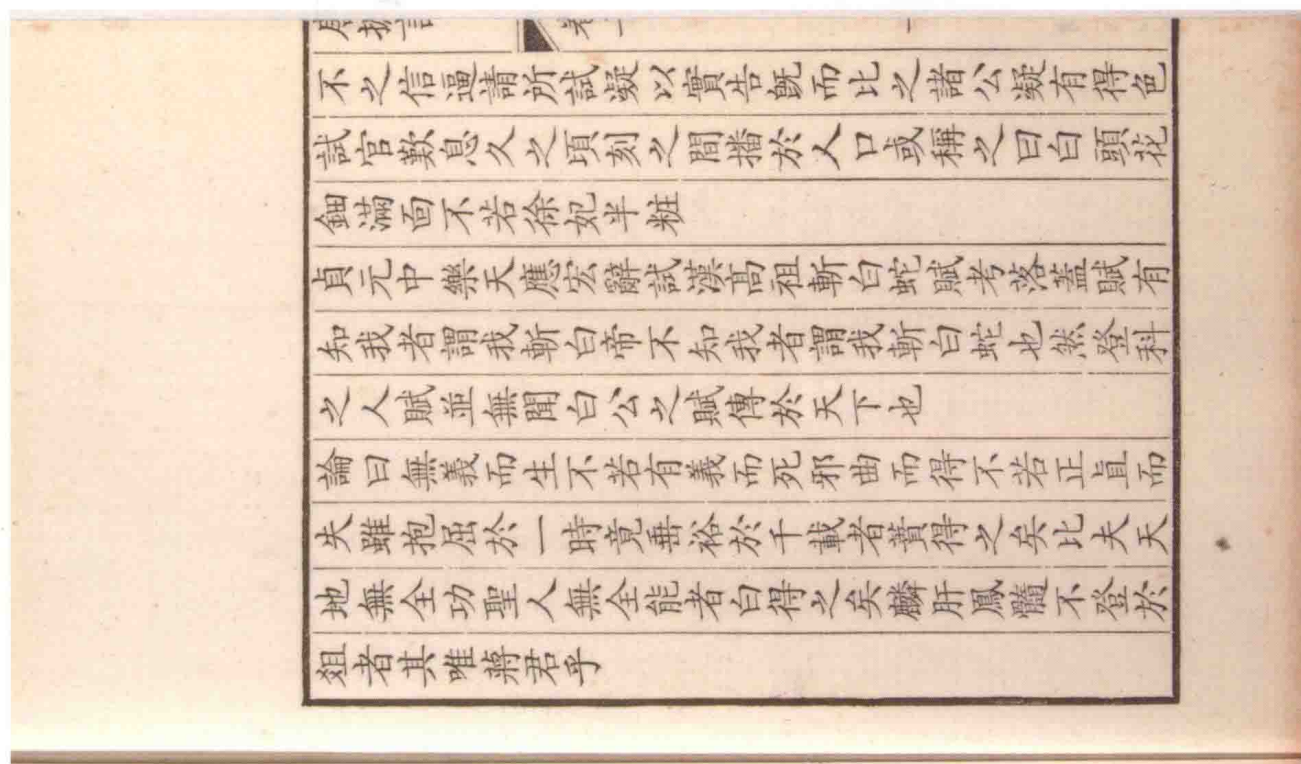 不之信逼請所試凝以實告旣而比之諸公凝有得色
試官歎息久之頃刻之間播於人口或稱之曰白頭花
鈿滿面不若徐妃半粧
貞元中樂天應宏辭試漢高祖斬白蛇賦考落蓋賦有
知我者謂我斬白帝不知我者謂我斬白蛇也然登科
之人賦並無聞白公之賦傳於天下也
論曰無義而生不若有義而死邪曲而得不若正直而
失雖抱屈於一時竟垂裕於千載者蕡得之矣比夫天
地無全功聖人無全能者白得之矣麟肝鳳髓不登於
俎者其唯蔣君乎